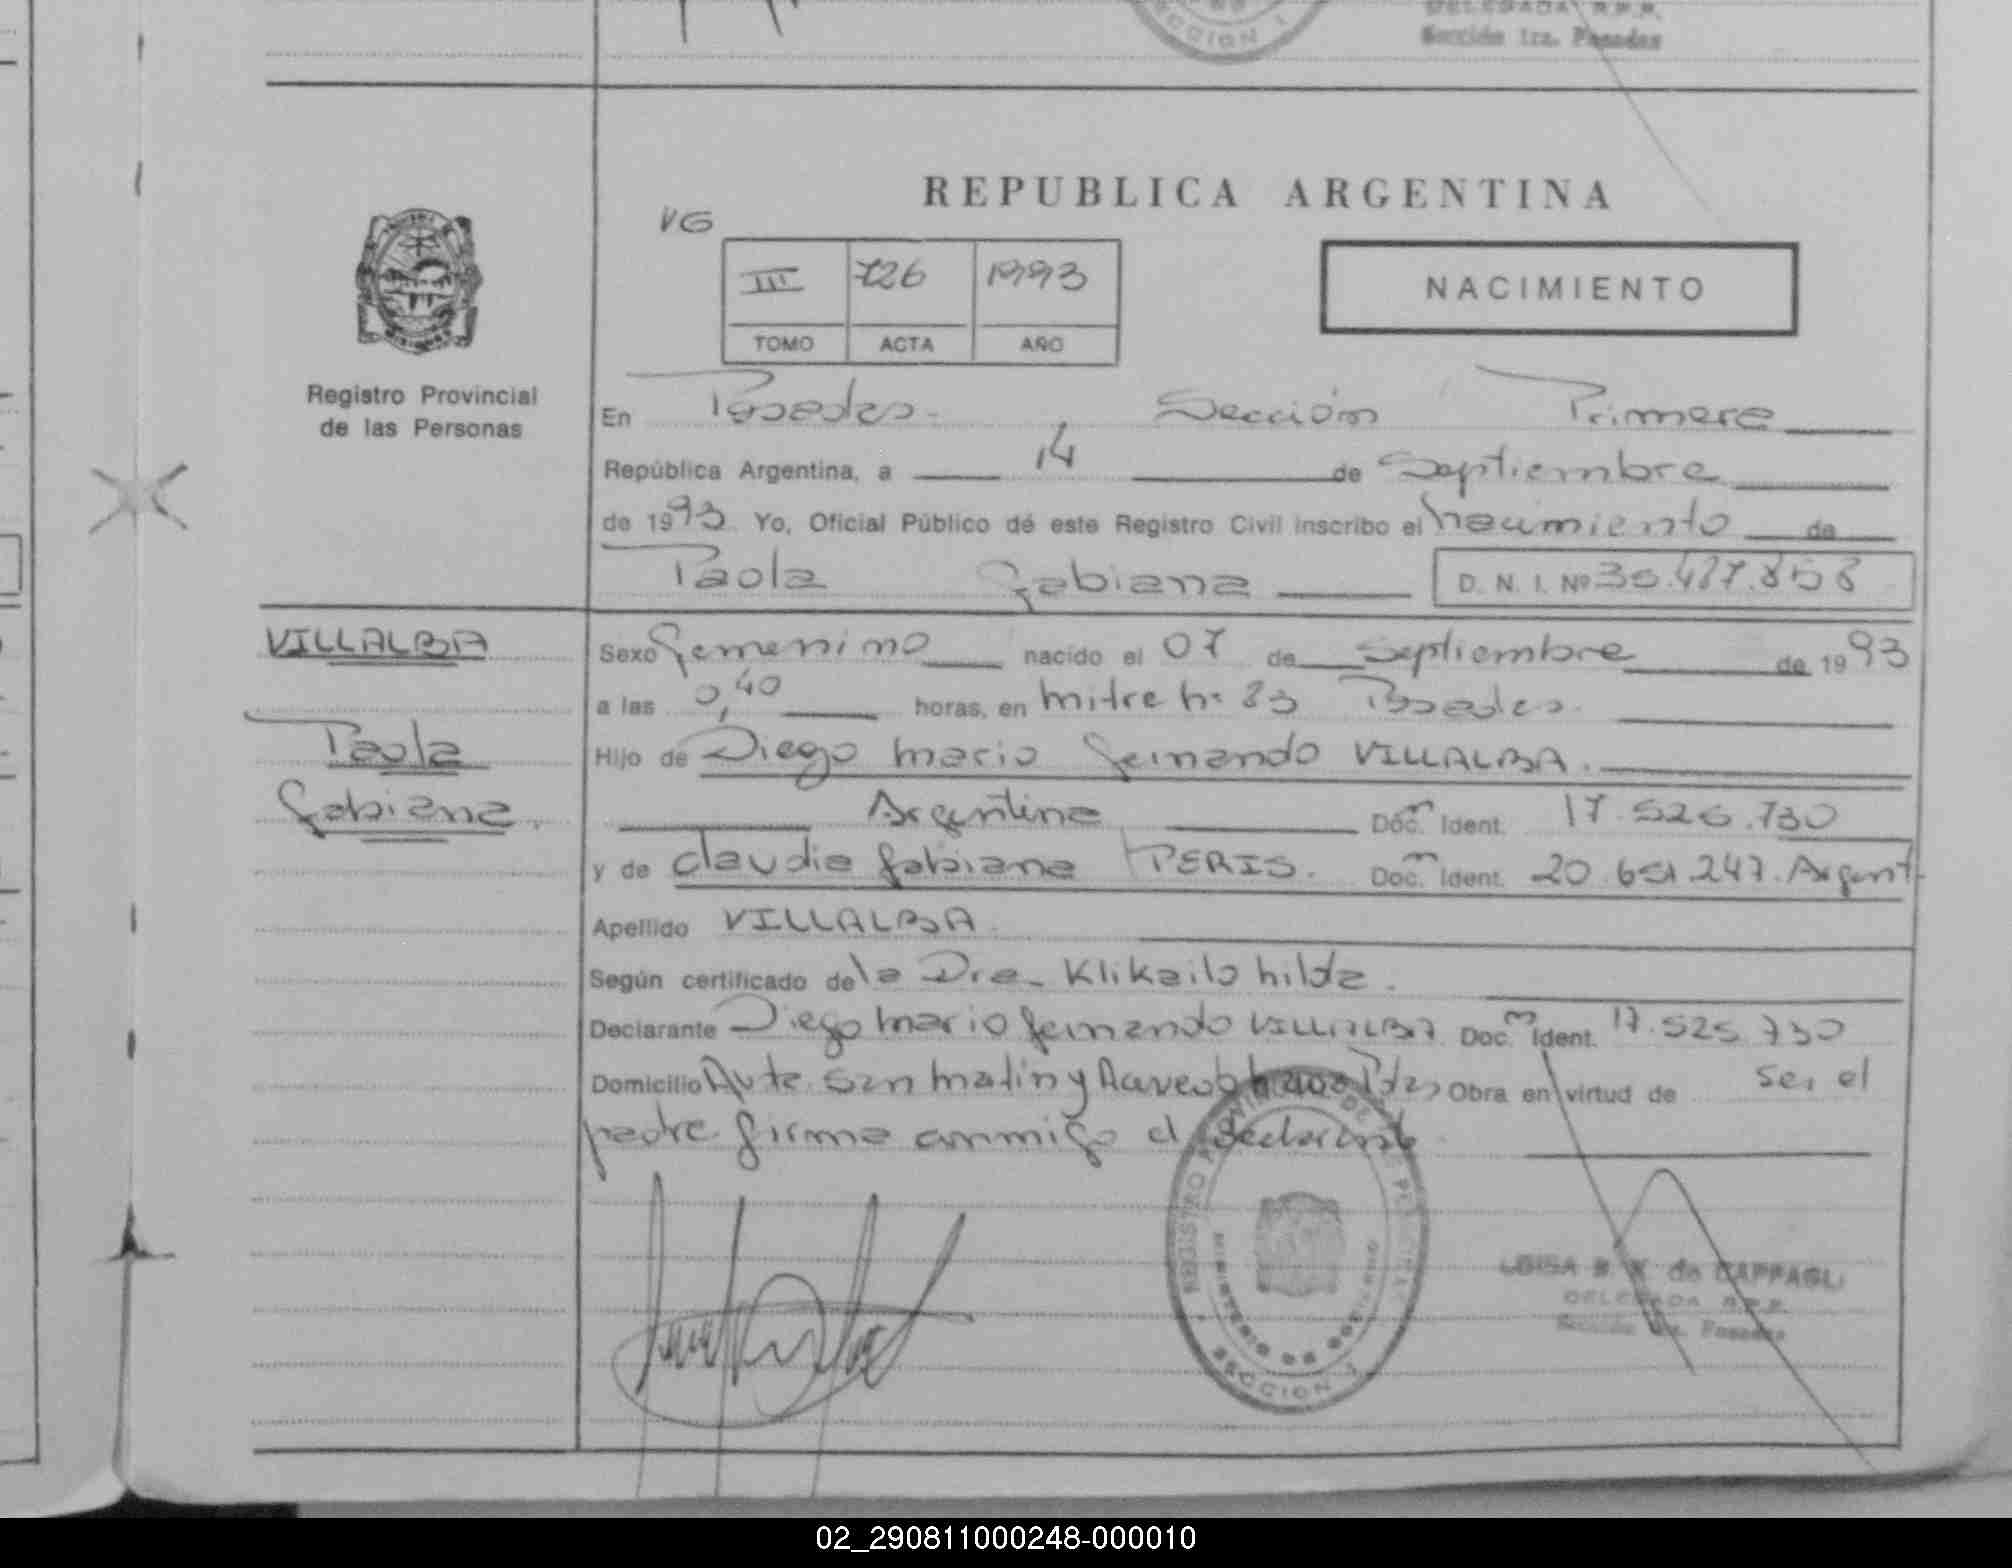 DELEGADA R.P.P.
Sección 1ra. Posadas
SECCION 1
REPUBLICA ARGENTINA
VG
III 726 1993
TOMO ACTA AÑO
NACIMIENTO
Registro Provincial
de las Personas
En Posadas. Sección Primera
República Argentina, a 14 de Septiembre
de 1993 Yo, Oficial Público dé este Registro Civil inscribo el nacimiento de
Paola Fabiana D. N. I. Nº
VILLALBA
Paola
Fabiana.
Sexo femenino nacido el 07 de Septiembre de 1993
a las 0,40 horas, en mitre nº 83 Posadas.
Hijo de Diego mario fernando VILLALBA.
Argentina Doc. m Ident. 17.526.730
y de Claudia fabiana PERIS. Doc. m Ident. 20.651.247. Argent
Apellido VILLALBA.
Según certificado de la Dra. Klikailo hilda.
Declarante Diego mario fernando VILLALBA Doc. m Ident. 17.525.730
Domicilio Avte. San Matin y Pdas Obra en virtud de ser el
padre firma conmigo el declarante.
REGISTRO PROVINCIAL DE LAS PERSONAS
MINISTERIO DE GOBIERNO
SECCION 1
LUISA de CAPPAGLI
DELEGADA R.P.P.
Sección 1ra. Posadas
02_290811000248-000010